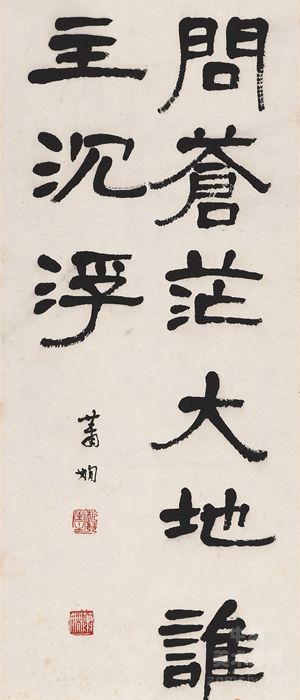 問蒼茫大地誰
主沉浮
蕭嫻